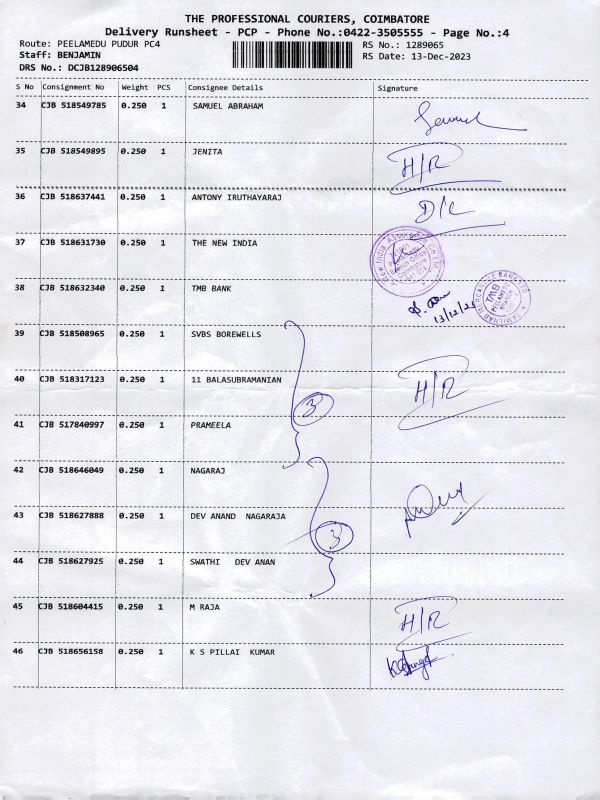 THE PROFESSIONAL COURIERS, COIMBATORE
Delivery Runsheet - PCP - Phone No.:0422-3505555 - Page No.:4
Route: PEELAMEDU PUDUR PC4 RS No.: 1289065
Staff: BENJAMIN RS Date: 13-Dec-2023
DRS No.: DCJB128906504
S No Consignment No Weight PCS Consignee Details Signature
34 CJB 518549785 0.250 1 SAMUEL ABRAHAM
35 CJB 518549895 0.250 1 JENITA H/R
36 CJB 518637441 0.250 1 ANTONY IRUTHAYARAJ D/L
37 CJB 518631730 0.250 1 THE NEW INDIA
38 CJB 518632340 0.250 1 TMB BANK
13/12/23
TMB
39 CJB 518508965 0.250 1 SVBS BOREWELLS
40 CJB 518317123 0.250 1 11 BALASUBRAMANIAN 3 H/R
41 CJB 517840997 0.250 1 PRAMEELA
42 CJB 518646049 0.250 1 NAGARAJ
43 CJB 518627888 0.250 1 DEV ANAND NAGARAJA 3
44 CJB 518627925 0.250 1 SWATHI DEV ANAN
45 CJB 518604415 0.250 1 M RAJA H/R
46 CJB 518656158 0.250 1 K S PILLAI KUMAR